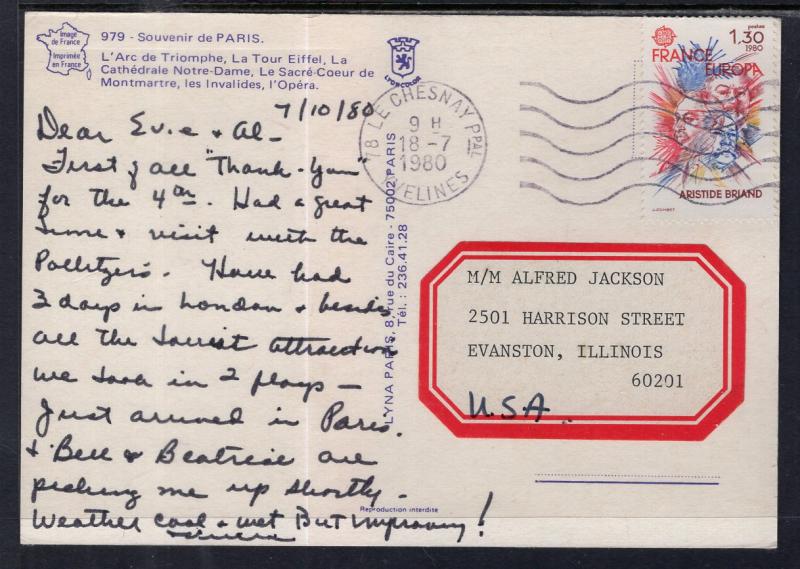 Image
de France
Imprimée
en France
979 - Souvenir de PARIS.
L'Arc de Triomphe, La Tour Eiffel, La
Cathédrale Notre-Dame, Le Sacré-Coeur de
Montmartre, les Invalides, l'Opéra.
LYONCOLOR
7/10/80
Dear Evie & Al-
First of all "Thank-You"
for the 4th. Had a great
time & visit with the
Pollitzers. Have had
3 days in London & besides
all the tourist attractions
we took in 2 plays -
Just arrived in Paris.
& Bell & Beatrice are
picking me up shortly -
Weather cool & wet But Improving!
LYNA PARIS, 8, rue du Caire - 75002 PARIS
Tél.: 236.41.28
Reproduction interdite
78 LE CHESNAY PPAL
9 H
18-7
1980
YVELINES
postes
1,30
1980
FRANCE EUROPA
ARISTIDE BRIAND
M/M ALFRED JACKSON
2501 HARRISON STREET
EVANSTON, ILLINOIS
60201
U.S.A.